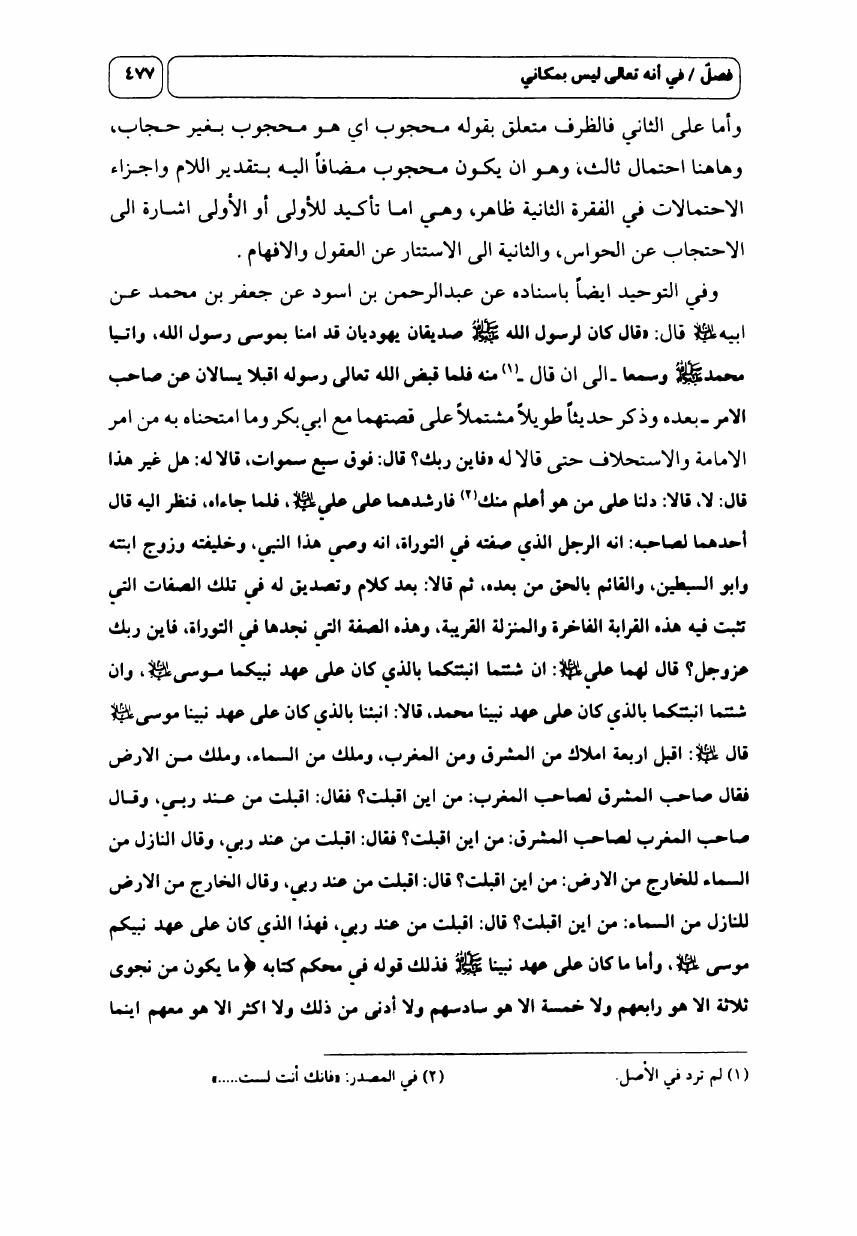 فصلّ / في أنه تعالى ليس بمكاني
٤٧٧
وأما على الثاني فالظرف متعلق بقوله محجوب اي هو محجوب بغير حجاب،
وهاهنا احتمال ثالث، وهو ان يكون محجوب مضافاً اليه بتقدير اللام واجزاء
الاحتمالات في الفقرة الثانية ظاهر، وهي اما تأكيد للأولى أو الأولى اشارة الى
الاحتجاب عن الحواس، والثانية الى الاستتار عن العقول والافهام .
وفي التوحيد ايضاً باسناده عن عبدالرحمن بن اسود عن جعفر بن محمد عن
ابيه ﷺ قال: «قال كان لرسول الله ﷺ صديقان يهوديان قد امنا بموسى رسول الله، واتيا
محمد ﷺ وسمعا ـ الى ان قال ـ (١) منه فلما قبض الله تعالى رسوله اقبلا يسالان عن صاحب
الامر ـ بعده وذكر حديثاً طويلاً مشتملاً على قصتهما مع ابي بكر وما امتحناه به من امر
الامامة والاستحلاف حتى قالا له «فاين ربك؟ قال: فوق سبع سموات، قالا له: هل غير هذا
قال: لا، قالا: دلنا على من هو أعلم منك(٢) فارشدهما على علي ؏، فلما جاءاه، فنظر اليه قال
أحدهما لصاحبه: انه الرجل الذي صفته في التوراة، انه وصي هذا النبي، وخليفته وزوج ابنته
وابو السبطين، والقائم بالحق من بعده، ثم قالا: بعد كلام وتصديق له في تلك الصفات التي
تثبت فيه هذه القرابة الفاخرة والمنزلة القريبة، وهذه الصفة التي نجدها في التوراة، فاين ربك
عزوجل؟ قال لهما علي ؏: ان شئتما انبئتكما بالذي كان على عهد نبيكما موسى ؏، وان
شئتما انبئتكما بالذي كان على عهد نبينا محمد، قالا: انبئنا بالذي كان على عهد نبينا موسى ؏
قال ؏: اقبل اربعة املاك من المشرق ومن المغرب، وملك من السماء، وملك من الارض
فقال صاحب المشرق لصاحب المغرب: من اين اقبلت؟ فقال: اقبلت من عند ربي، وقال
صاحب المغرب لصاحب المشرق: من اين اقبلت؟ فقال: اقبلت من عند ربي، وقال النازل من
السماء للخارج من الارض: من اين اقبلت؟ قال: اقبلت من عند ربي، وقال الخارج من الارض
للنازل من السماء: من اين اقبلت؟ قال: اقبلت من عند ربي، فهذا الذي كان على عهد نبيكم
موسى ؏، وأما ما كان على عهد نبينا ﷺ فذلك قوله في محكم كتابه ﴿ما يكون من نجوى
ثلاثة الا هو رابعهم ولا خمسة الا هو سادسهم ولا أدنى من ذلك ولا اكثر الا هو معهم اينما
(١) لم ترد في الأصل.
(٢) في المصدر: «فانك أنت لست.....»